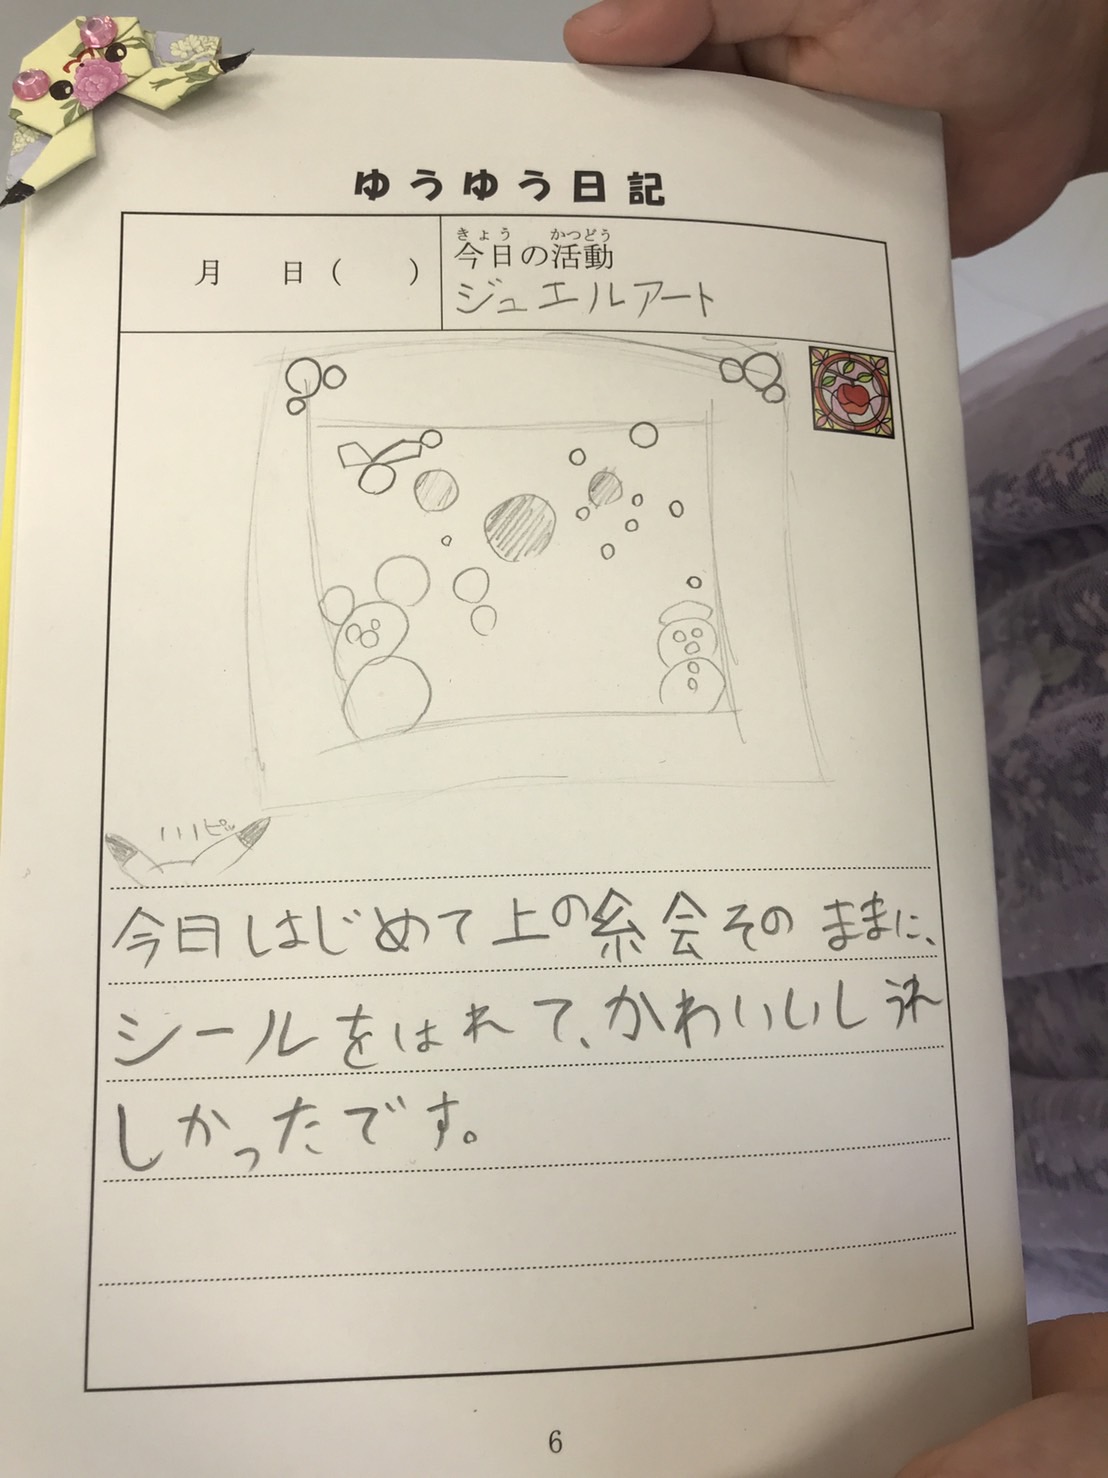 ゆうゆう日記
月 日( )
きょう かつどう
今日の活動
ジュエルアート
ピッ
今日はじめて上の絵そのままに、
シールをはれて、かわいいしうれ
しかったです。
6